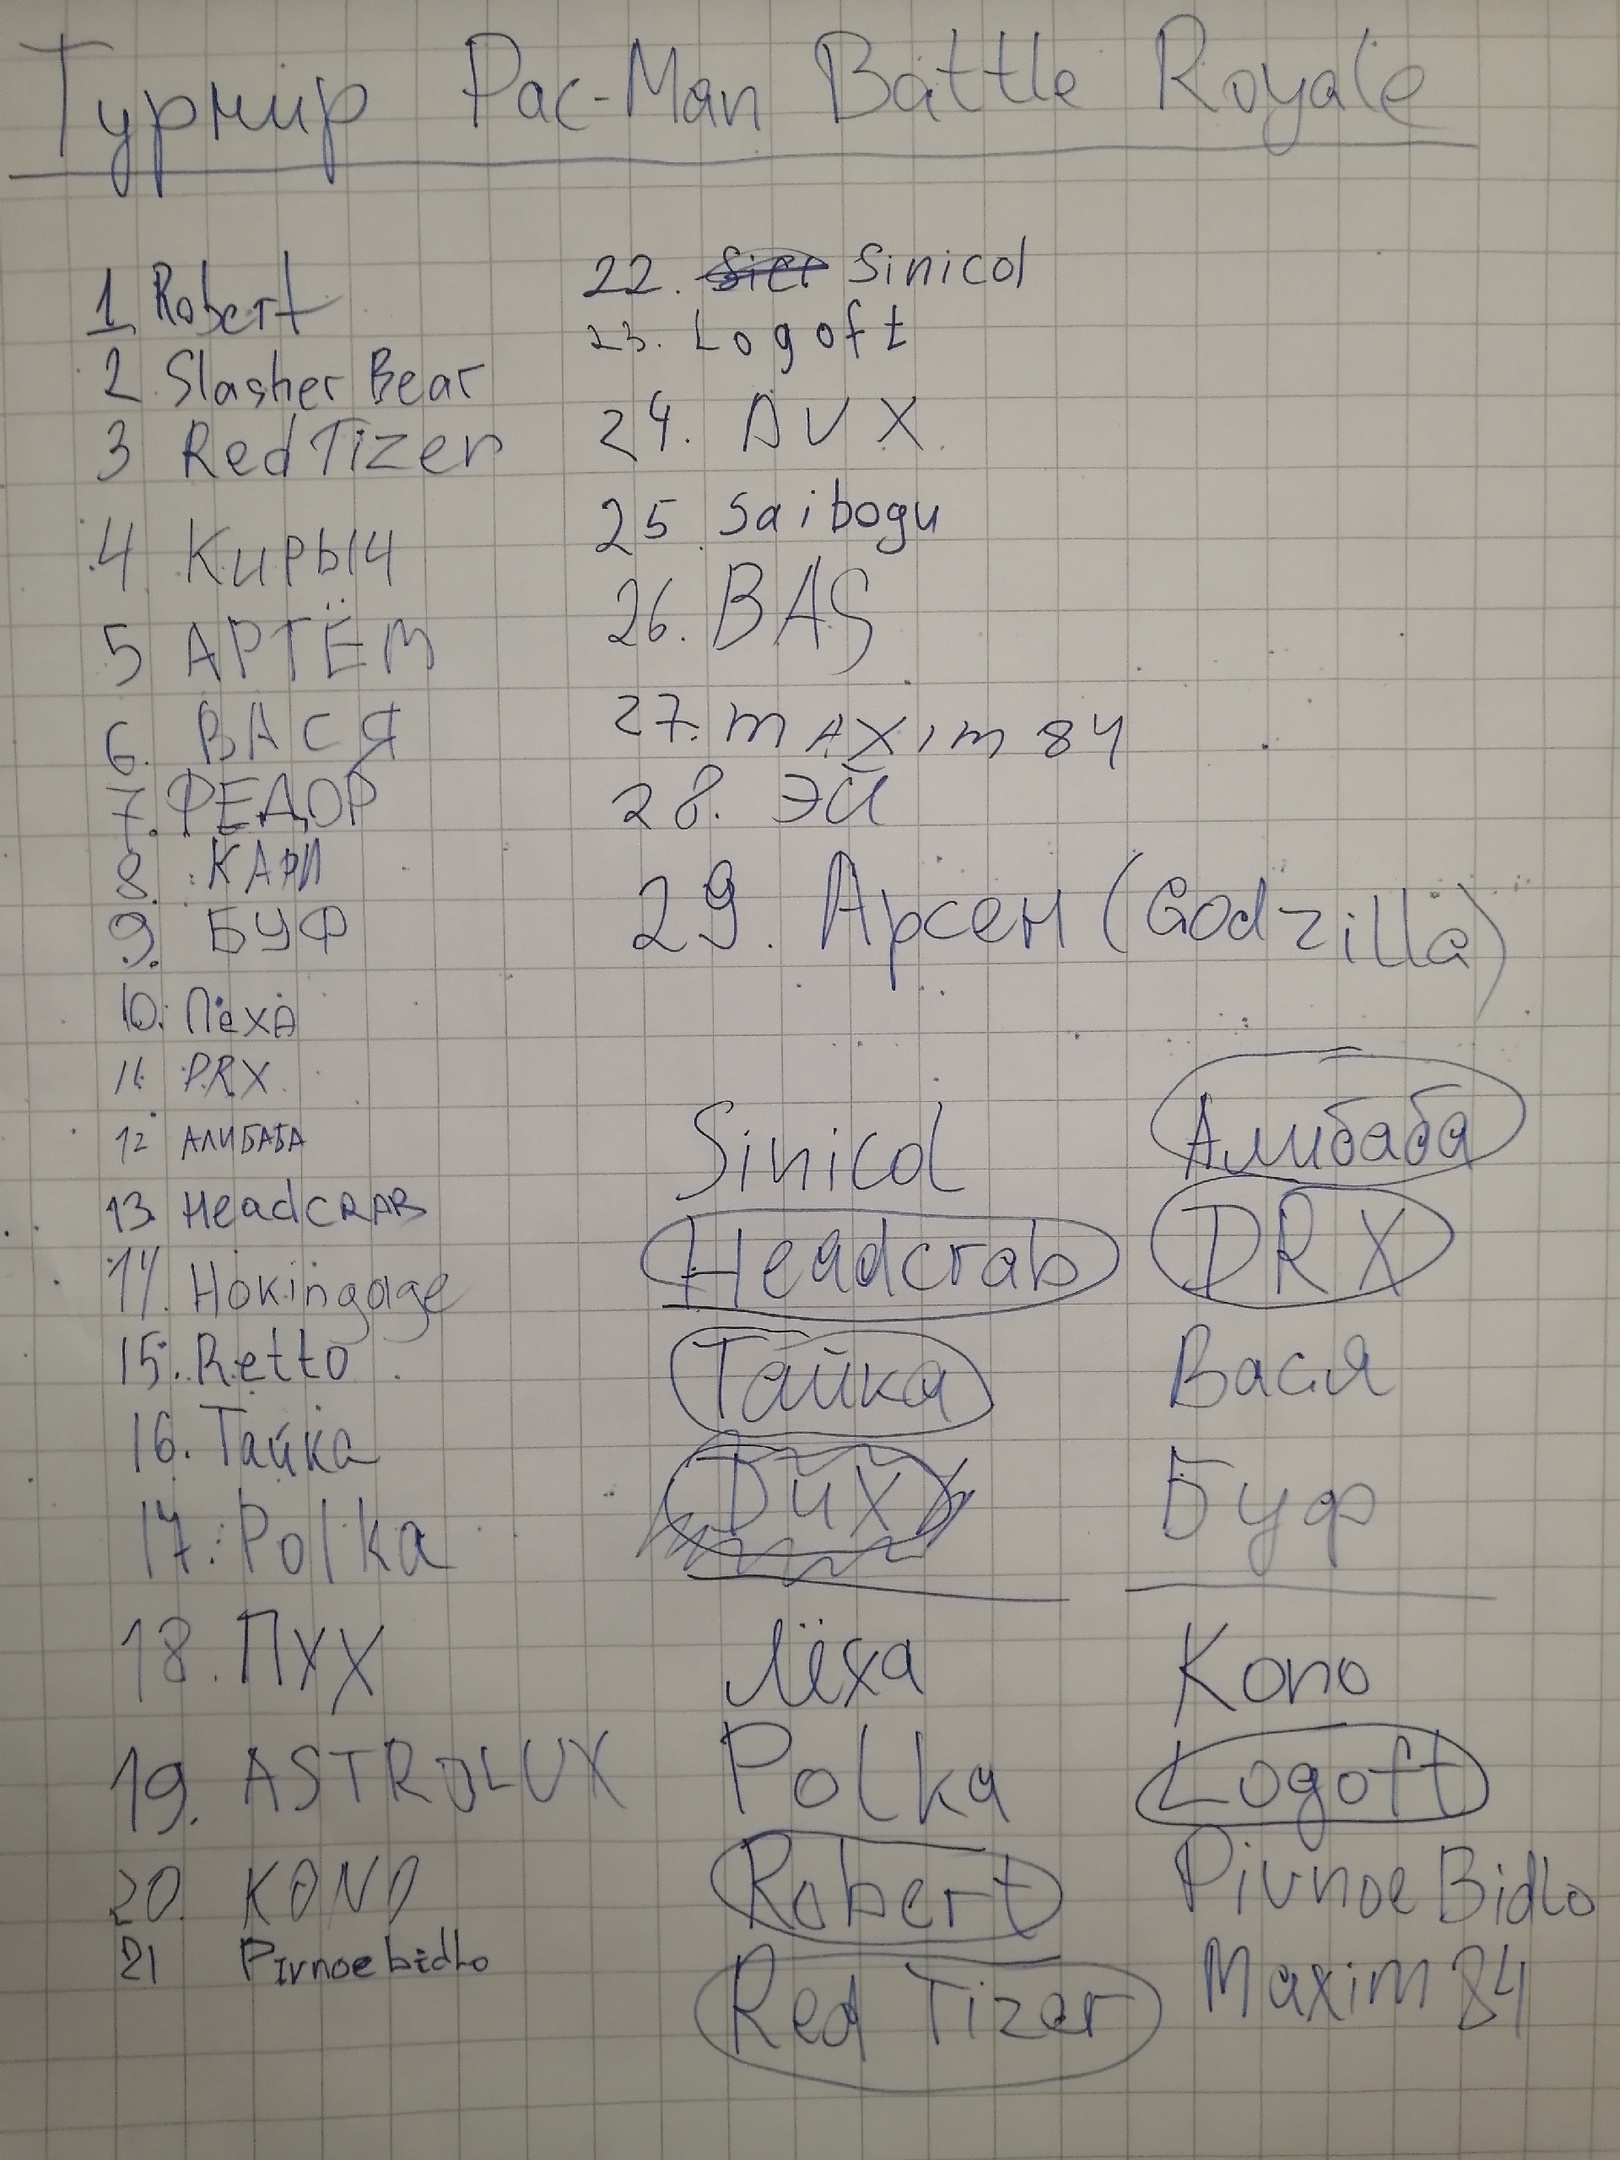 Турнир Pac-Man Battle Royale
1 Robert
2 Slasher Bear
3 Red Tizer
4 Кирыч
5 АРТЁМ
6. ВАСЯ
7. ФЕДОР
8. КАРЛ
9. БУФ
10. Лёха
11. DRX
12 АЛИБАБА
13. HeadcRAB
14. Hokingage
15. Retto
16. Тайка
17. Polka
18. ПУХ
19. ASTROLUX
20. KONO
21 Pivnoe bidlo
22. Sinicol
23. Logoft
24. DUX
25. Saibogu
26. BAS
27. mAXim 84
28. ЭЙ
29. Арсен (Godzilla)
Sinicol
Headcrab
Тайка
Dux
Алибаба
DRX
Вася
Буф
Лёха
Polka
Robert
Red Tizer
Kono
Logoft
Pivnoe Bidlo
Maxim 84